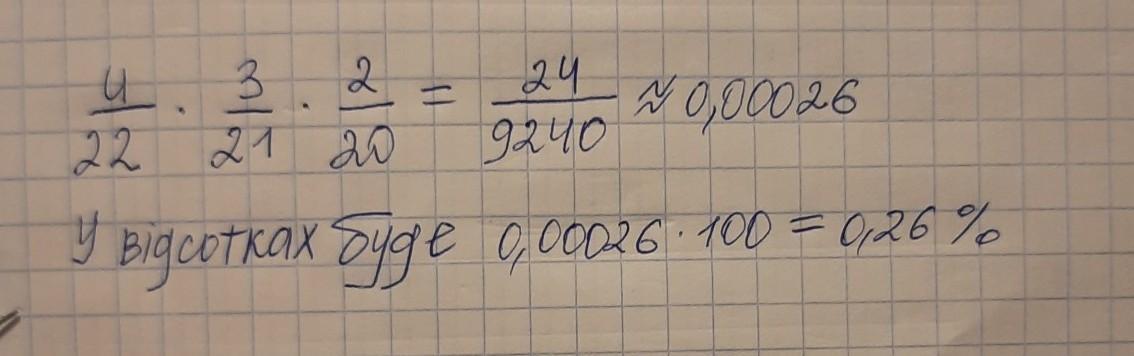 4/22 · 3/21 · 2/20 = 24/9240 ≈ 0,00026
У відсотках буде 0,00026 · 100 = 0,26 %